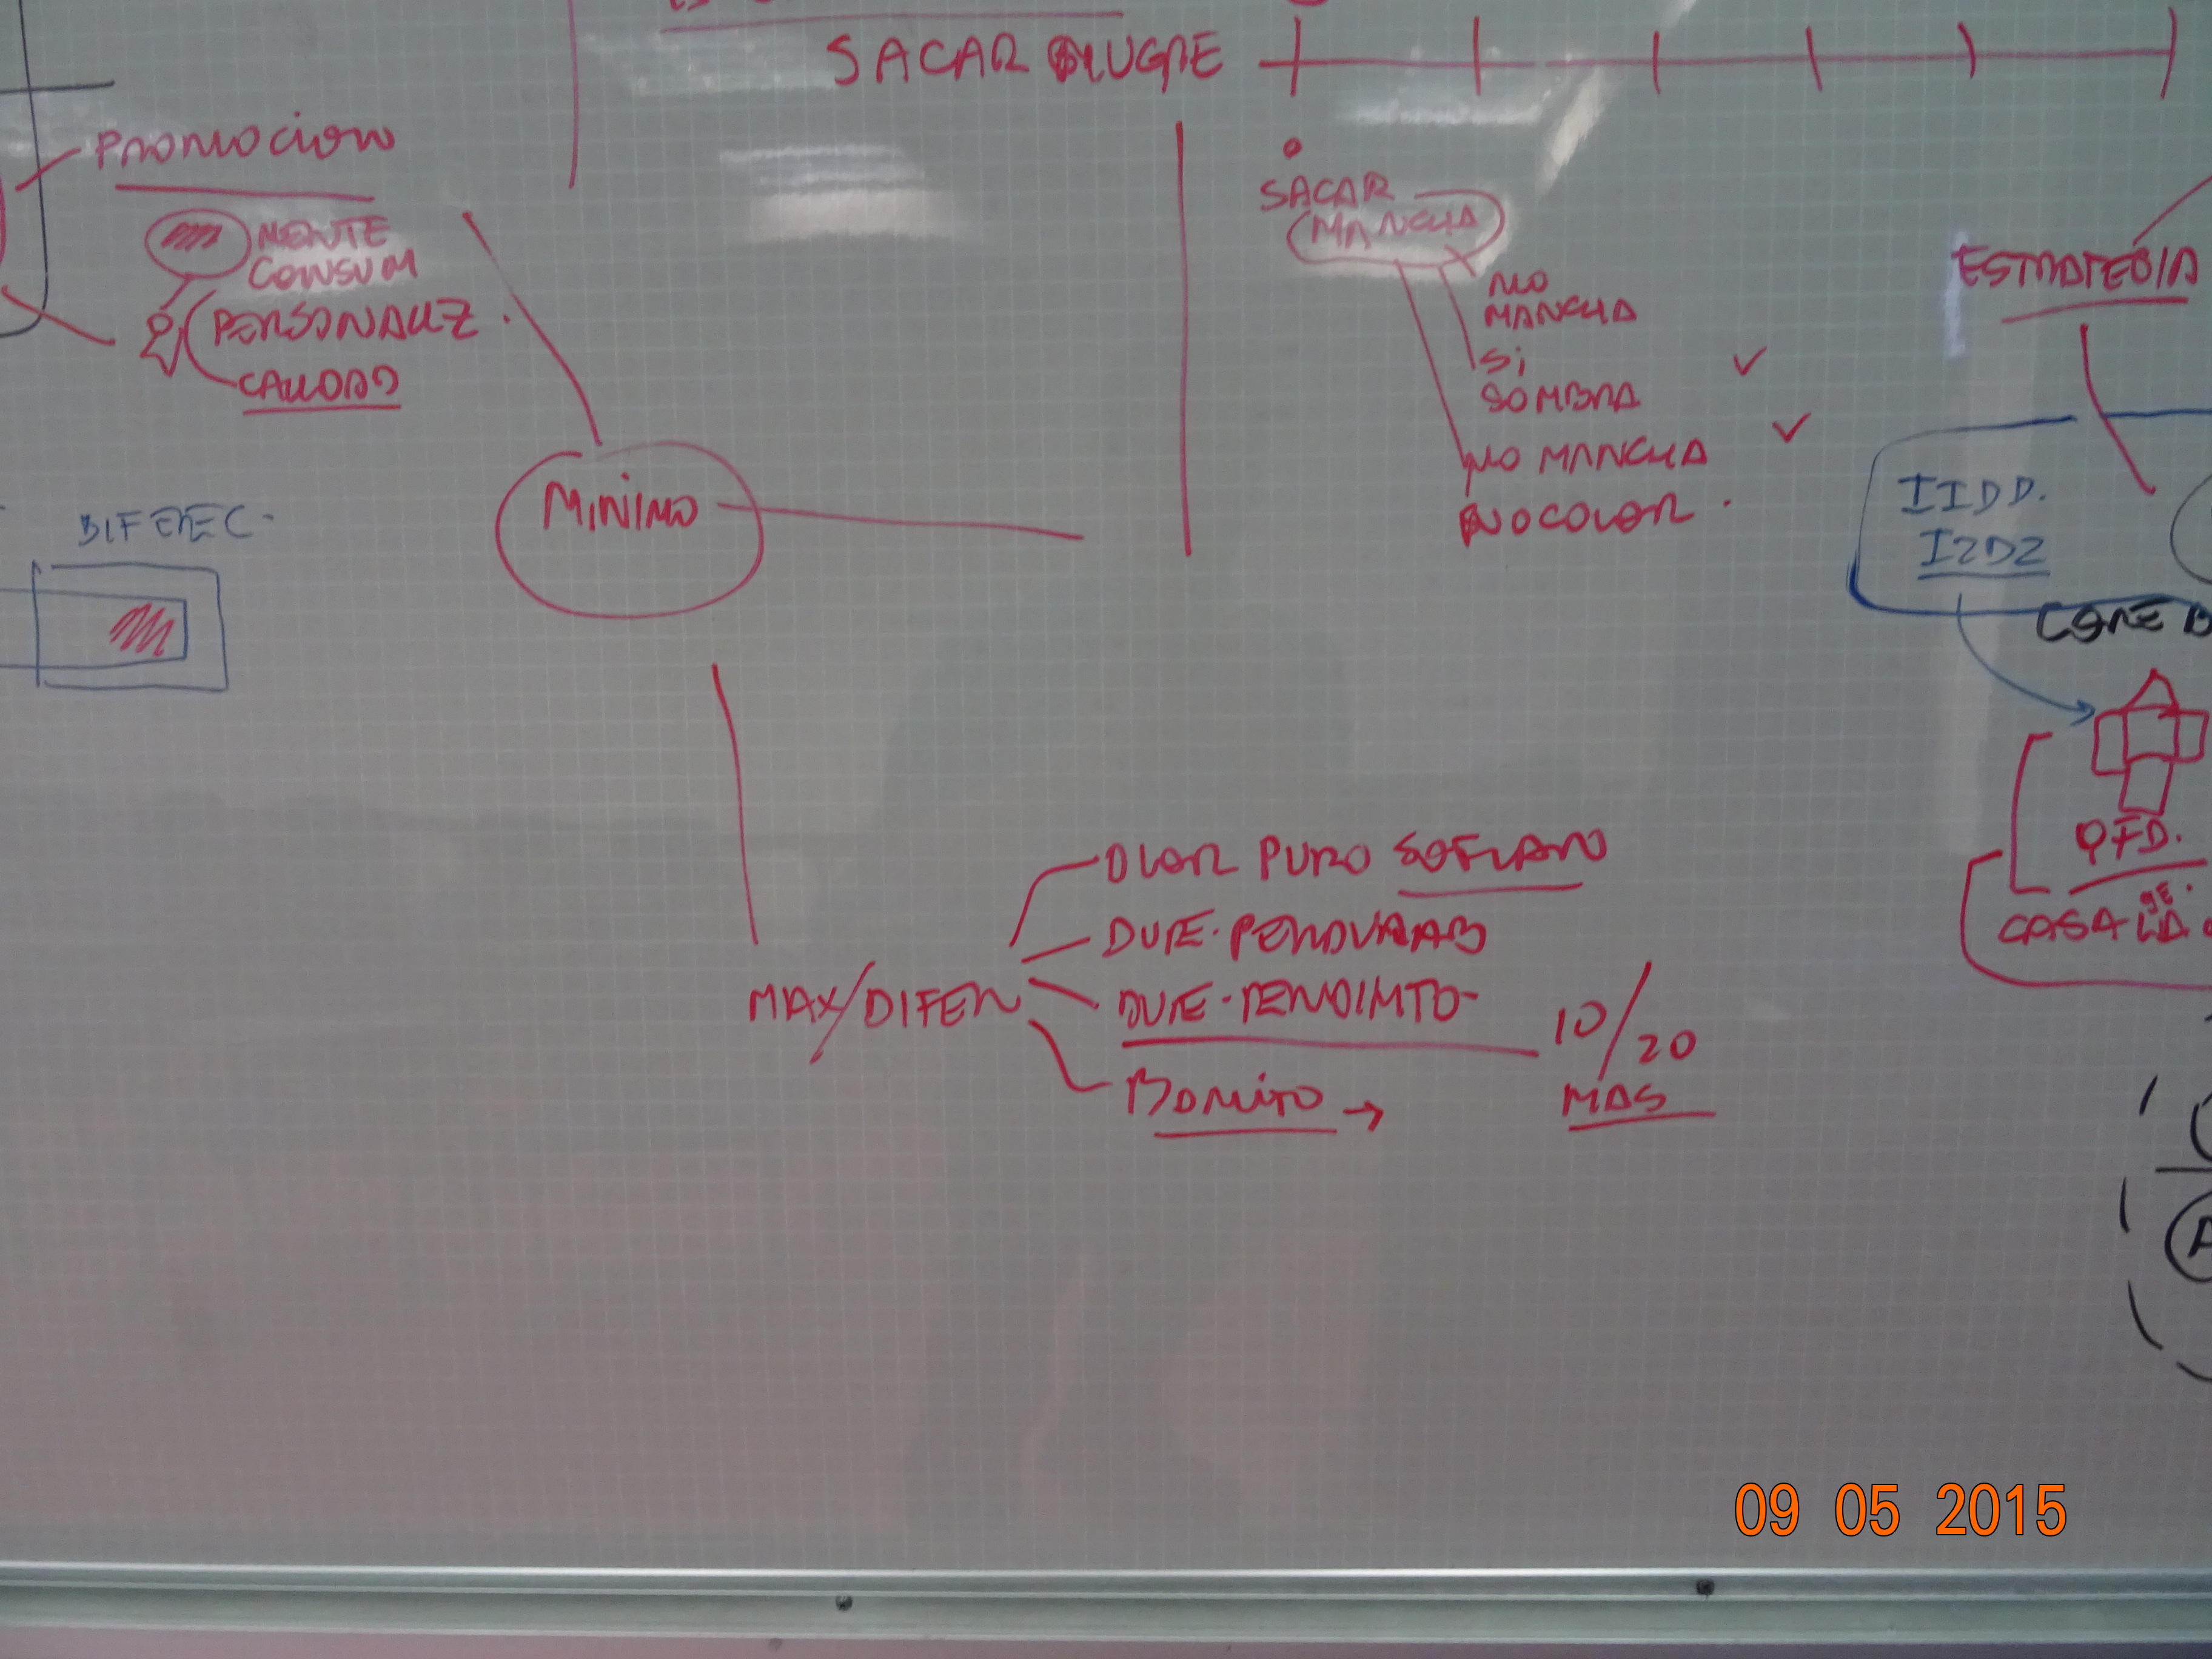 SACAR MUGRE
PROMOCION
MENTE
CONSUM
PERSONALIZ.
CALIDAD
SACAR
MANCHA
NO
MANCHA
SI
SOMBRA
NO MANCHA
NO COLOR.
ESTRATEGIA
MINIMO
IIDD.
I2D2
CORE B
QFD.
CASA
DE
LA
MAX/DIFER
OLOR PURO
DURE-
DURE-RENDIMTO-
BONITO →
10/20
MAS
A
09 05 2015